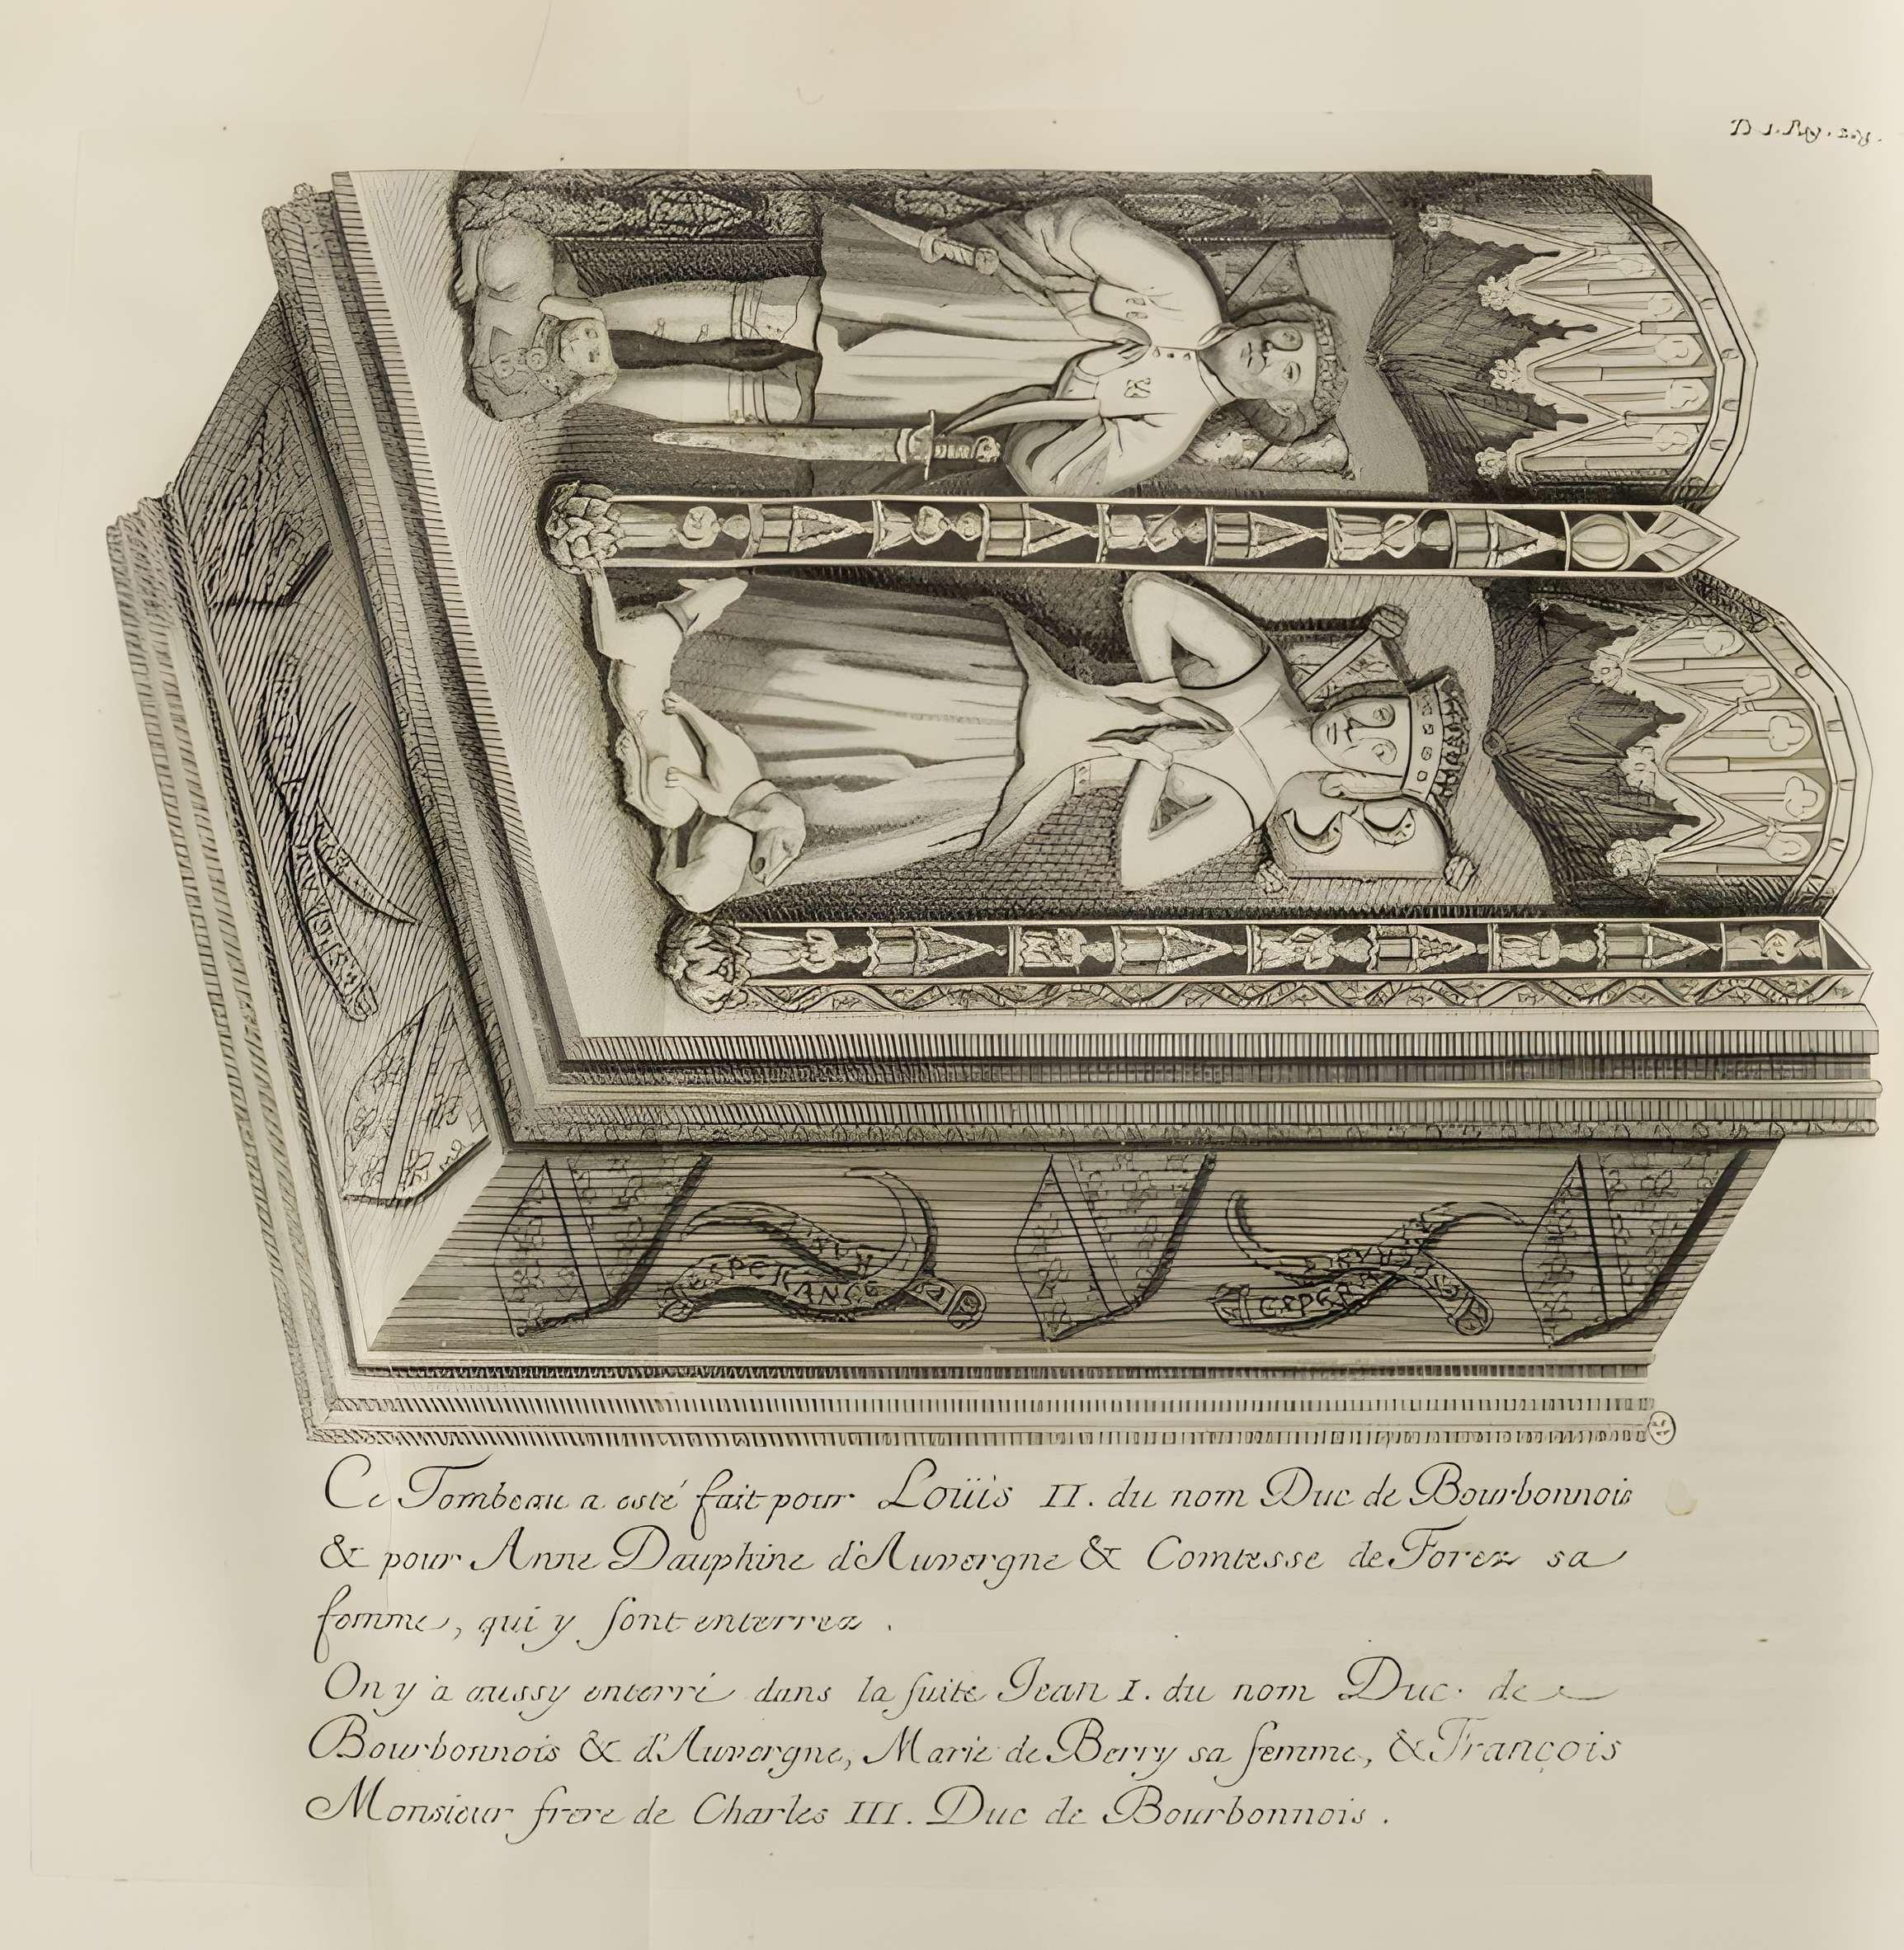 Ce Tombeau a esté fait pour Loüis II. du nom Duc de Bourbonnois
& pour Anne Dauphine d'Auvergne & Comtesse de Forez sa
femme, qui y sont enterrez.
On y a aussy enterré dans la suite Jean I. du nom Duc de
Bourbonnois & d'Auvergne, Marie de Berry sa femme, & François
Monsieur frere de Charles III. Duc de Bourbonnois.
ESPERANCE